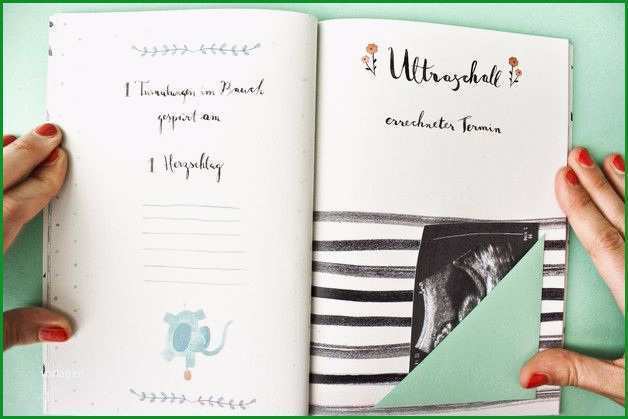 1 Turnübungen im Bauch
gespürt am
1 Herzschlag
Ultraschall
errechneter Termin